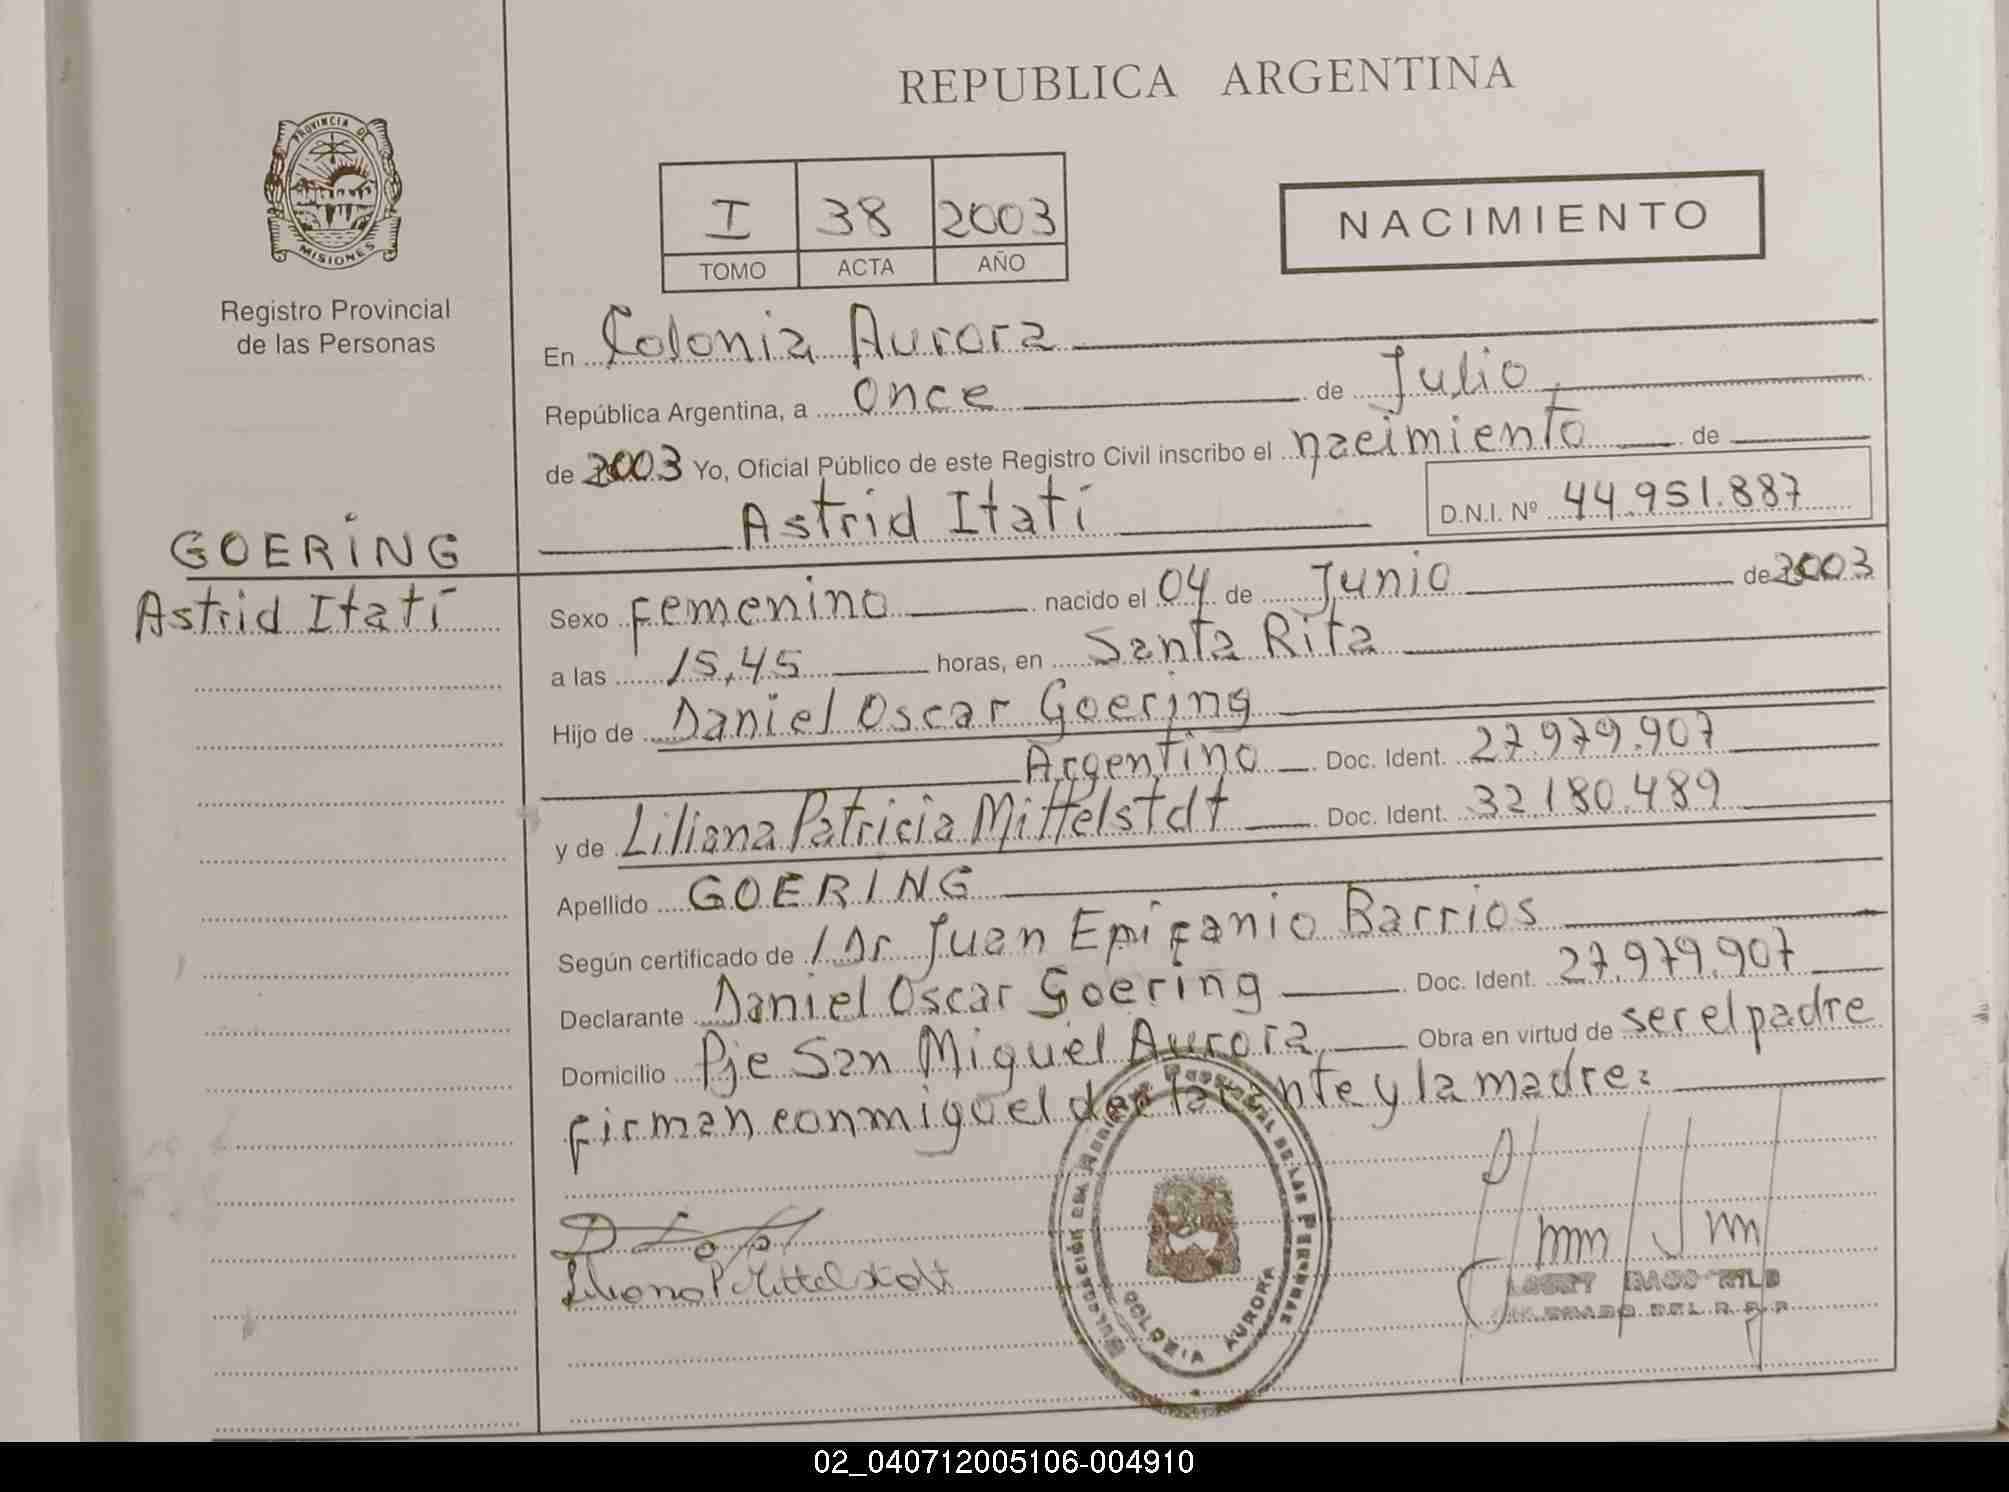 REPUBLICA ARGENTINA
PROVINCIA DE
MISIONES
Registro Provincial
de las Personas
I 38 2003
TOMO ACTA AÑO
NACIMIENTO
En Colonia Aurora
República Argentina, a once de Julio
de 2003 Yo, Oficial Público de este Registro Civil inscribo el nacimiento de
Astrid Itatí
D.N.I. Nº 44.951.887
GOERING
Astrid Itatí
Sexo Femenino nacido el 04 de Junio de 2003
a las 15,45 horas, en Santa Rita
Hijo de Daniel Oscar Goering
Argentino Doc. Ident. 27.979.907
y de Liliana Patricia Mittelstdt Doc. Ident. 32.180.489
Apellido GOERING
Según certificado de / Dr Juan Epifanio Barrios
Declarante Daniel Oscar Goering Doc. Ident. 27.979.907
Domicilio Pje San Miguel Aurora, Obra en virtud de ser el padre
firman conmiguel declarante y la madre:
Liliana P Mittelstdt
COLONIA AURORA
DEL R. P. P.
02_040712005106-004910